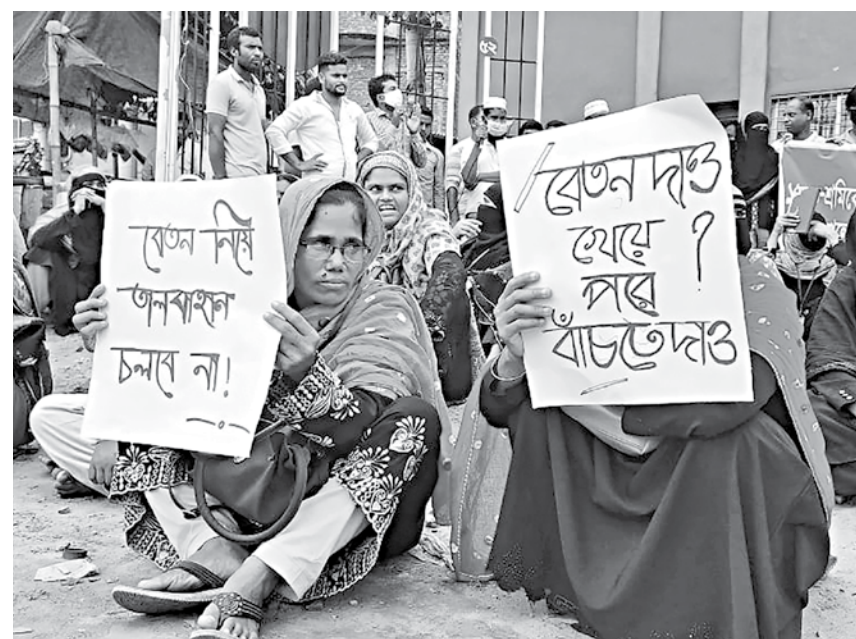 বেতন নিয়ে
তালবাহান
চলবে না!
বেতন দাও
খেয়ে ?
পরে
বাঁচতে দাও
৫২
শ্রমিকে